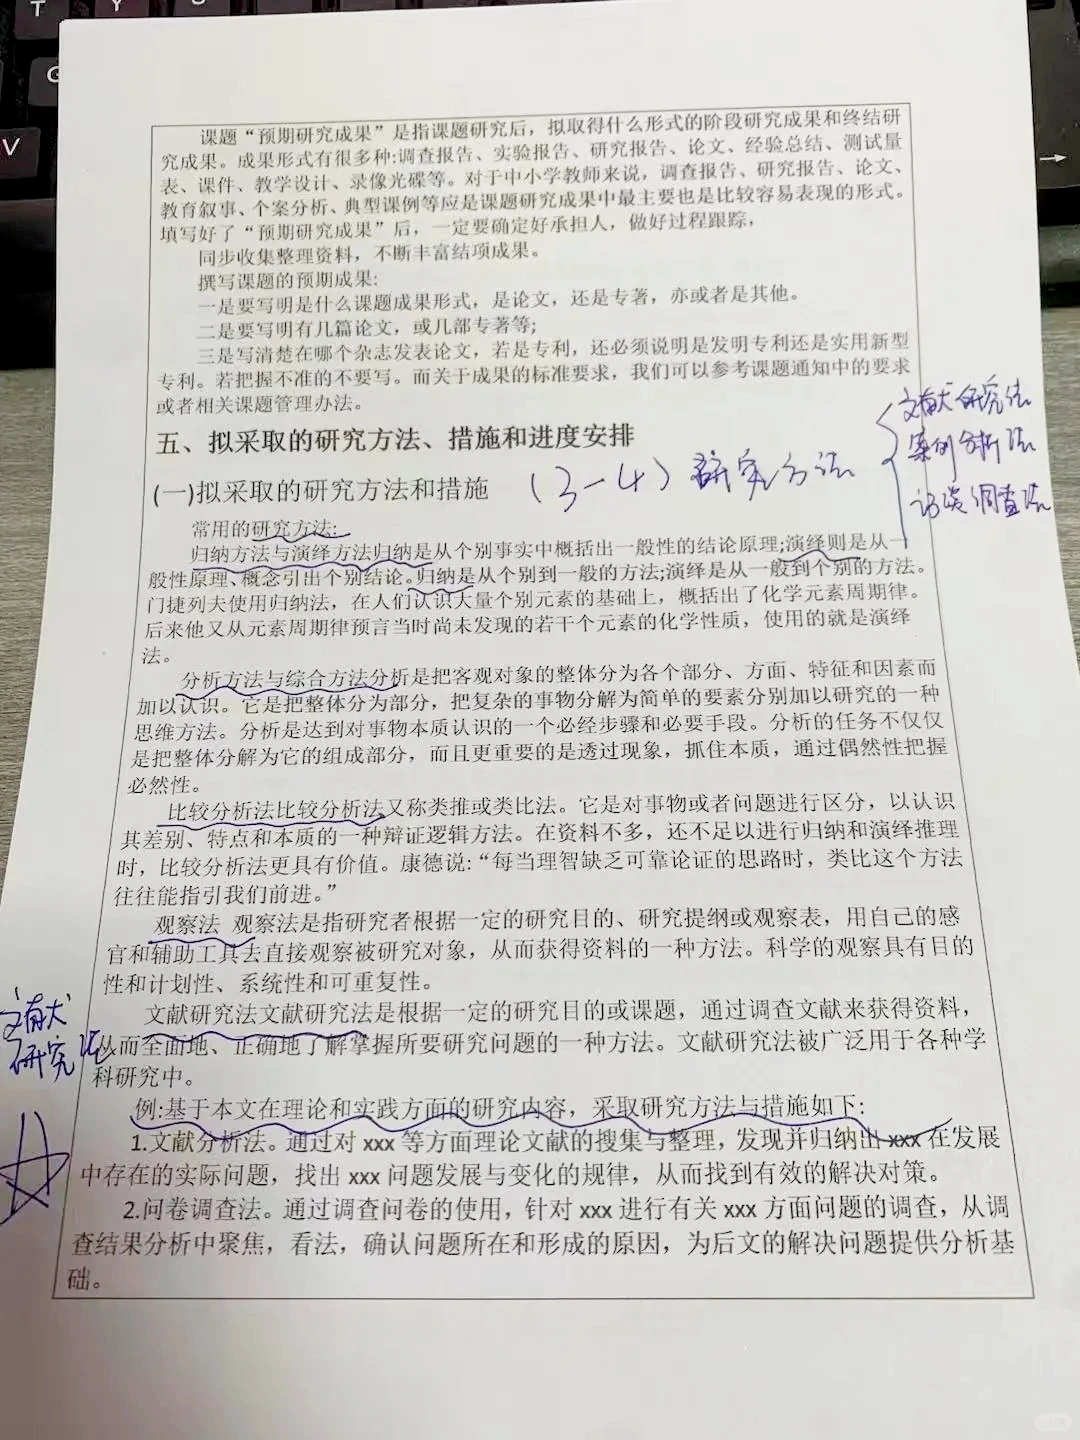 T
Y
G
V
课题“预期研究成果”是指课题研究后，拟取得什么形式的阶段研究成果和终结研
究成果。成果形式有很多种:调查报告、实验报告、研究报告、论文、经验总结、测试量
表、课件、教学设计、录像光碟等。对于中小学教师来说，调查报告、研究报告、论文、
教育叙事、个案分析、典型课例等应是课题研究成果中最主要也是比较容易表现的形式。
填写好了“预期研究成果”后，一定要确定好承担人，做好过程跟踪，
同步收集整理资料，不断丰富结项成果。
撰写课题的预期成果:
一是要写明是什么课题成果形式，是论文，还是专著，亦或者是其他。
二是要写明有几篇论文，或几部专著等;
三是写清楚在哪个杂志发表论文，若是专利，还必须说明是发明专利还是实用新型
专利。若把握不准的不要写。而关于成果的标准要求，我们可以参考课题通知中的要求
或者相关课题管理办法。
五、拟采取的研究方法、措施和进度安排
(一)拟采取的研究方法和措施
（3-4）研究方法
文献研究法
案例分析法
访谈调查法
常用的研究方法:
归纳方法与演绎方法归纳是从个别事实中概括出一般性的结论原理;演绎则是从一
般性原理、概念引出个别结论。归纳是从个别到一般的方法;演绎是从一般到个别的方法。
门捷列夫使用归纳法，在人们认识大量个别元素的基础上，概括出了化学元素周期律。
后来他又从元素周期律预言当时尚未发现的若干个元素的化学性质，使用的就是演绎
法。
分析方法与综合方法分析是把客观对象的整体分为各个部分、方面、特征和因素而
加以认识。它是把整体分为部分，把复杂的事物分解为简单的要素分别加以研究的一种
思维方法。分析是达到对事物本质认识的一个必经步骤和必要手段。分析的任务不仅仅
是把整体分解为它的组成部分，而且更重要的是透过现象，抓住本质，通过偶然性把握
必然性。
比较分析法比较分析法又称类推或类比法。它是对事物或者问题进行区分，以认识
其差别、特点和本质的一种辩证逻辑方法。在资料不多，还不足以进行归纳和演绎推理
时，比较分析法更具有价值。康德说:“每当理智缺乏可靠论证的思路时，类比这个方法
往往能指引我们前进。”
观察法 观察法是指研究者根据一定的研究目的、研究提纲或观察表，用自己的感
官和辅助工具去直接观察被研究对象，从而获得资料的一种方法。科学的观察具有目的
性和计划性、系统性和可重复性。
文献研究法文献研究法是根据一定的研究目的或课题，通过调查文献来获得资料，
从而全面地、正确地了解掌握所要研究问题的一种方法。文献研究法被广泛用于各种学
科研究中。
文献
研究法
例:基于本文在理论和实践方面的研究内容，采取研究方法与措施如下:
1.文献分析法。通过对 xxx 等方面理论文献的搜集与整理，发现并归纳出 xxx 在发展
中存在的实际问题，找出 xxx 问题发展与变化的规律，从而找到有效的解决对策。
2.问卷调查法。通过调查问卷的使用，针对 xxx 进行有关 xxx 方面问题的调查，从调
查结果分析中聚焦，看法，确认问题所在和形成的原因，为后文的解决问题提供分析基
础。